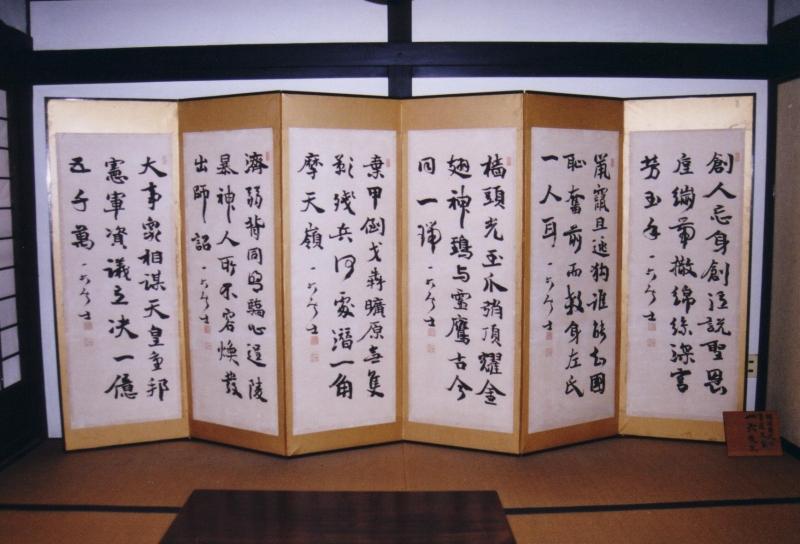 創人忘身創泣説聖恩
渥綳帯撒綿絲深宮
芳玉手 一六居士
鼠竄且逃狗誰能知國
恥奮前而救身左氏
一人耳 一六居士
檣頭光玉爪頂耀金
翅神鵄与霊鷹古今
同一瑞 一六居士
棄甲倒戈奔曠原無隻
影残兵何處潜一角
摩天嶺 一六居士
濟弱背同驕心逞陵
暴神人所不容煥發
出師詔 一六居士
大事衆相謀天皇重邦
憲軍資議立决一億
五千萬 一六居士